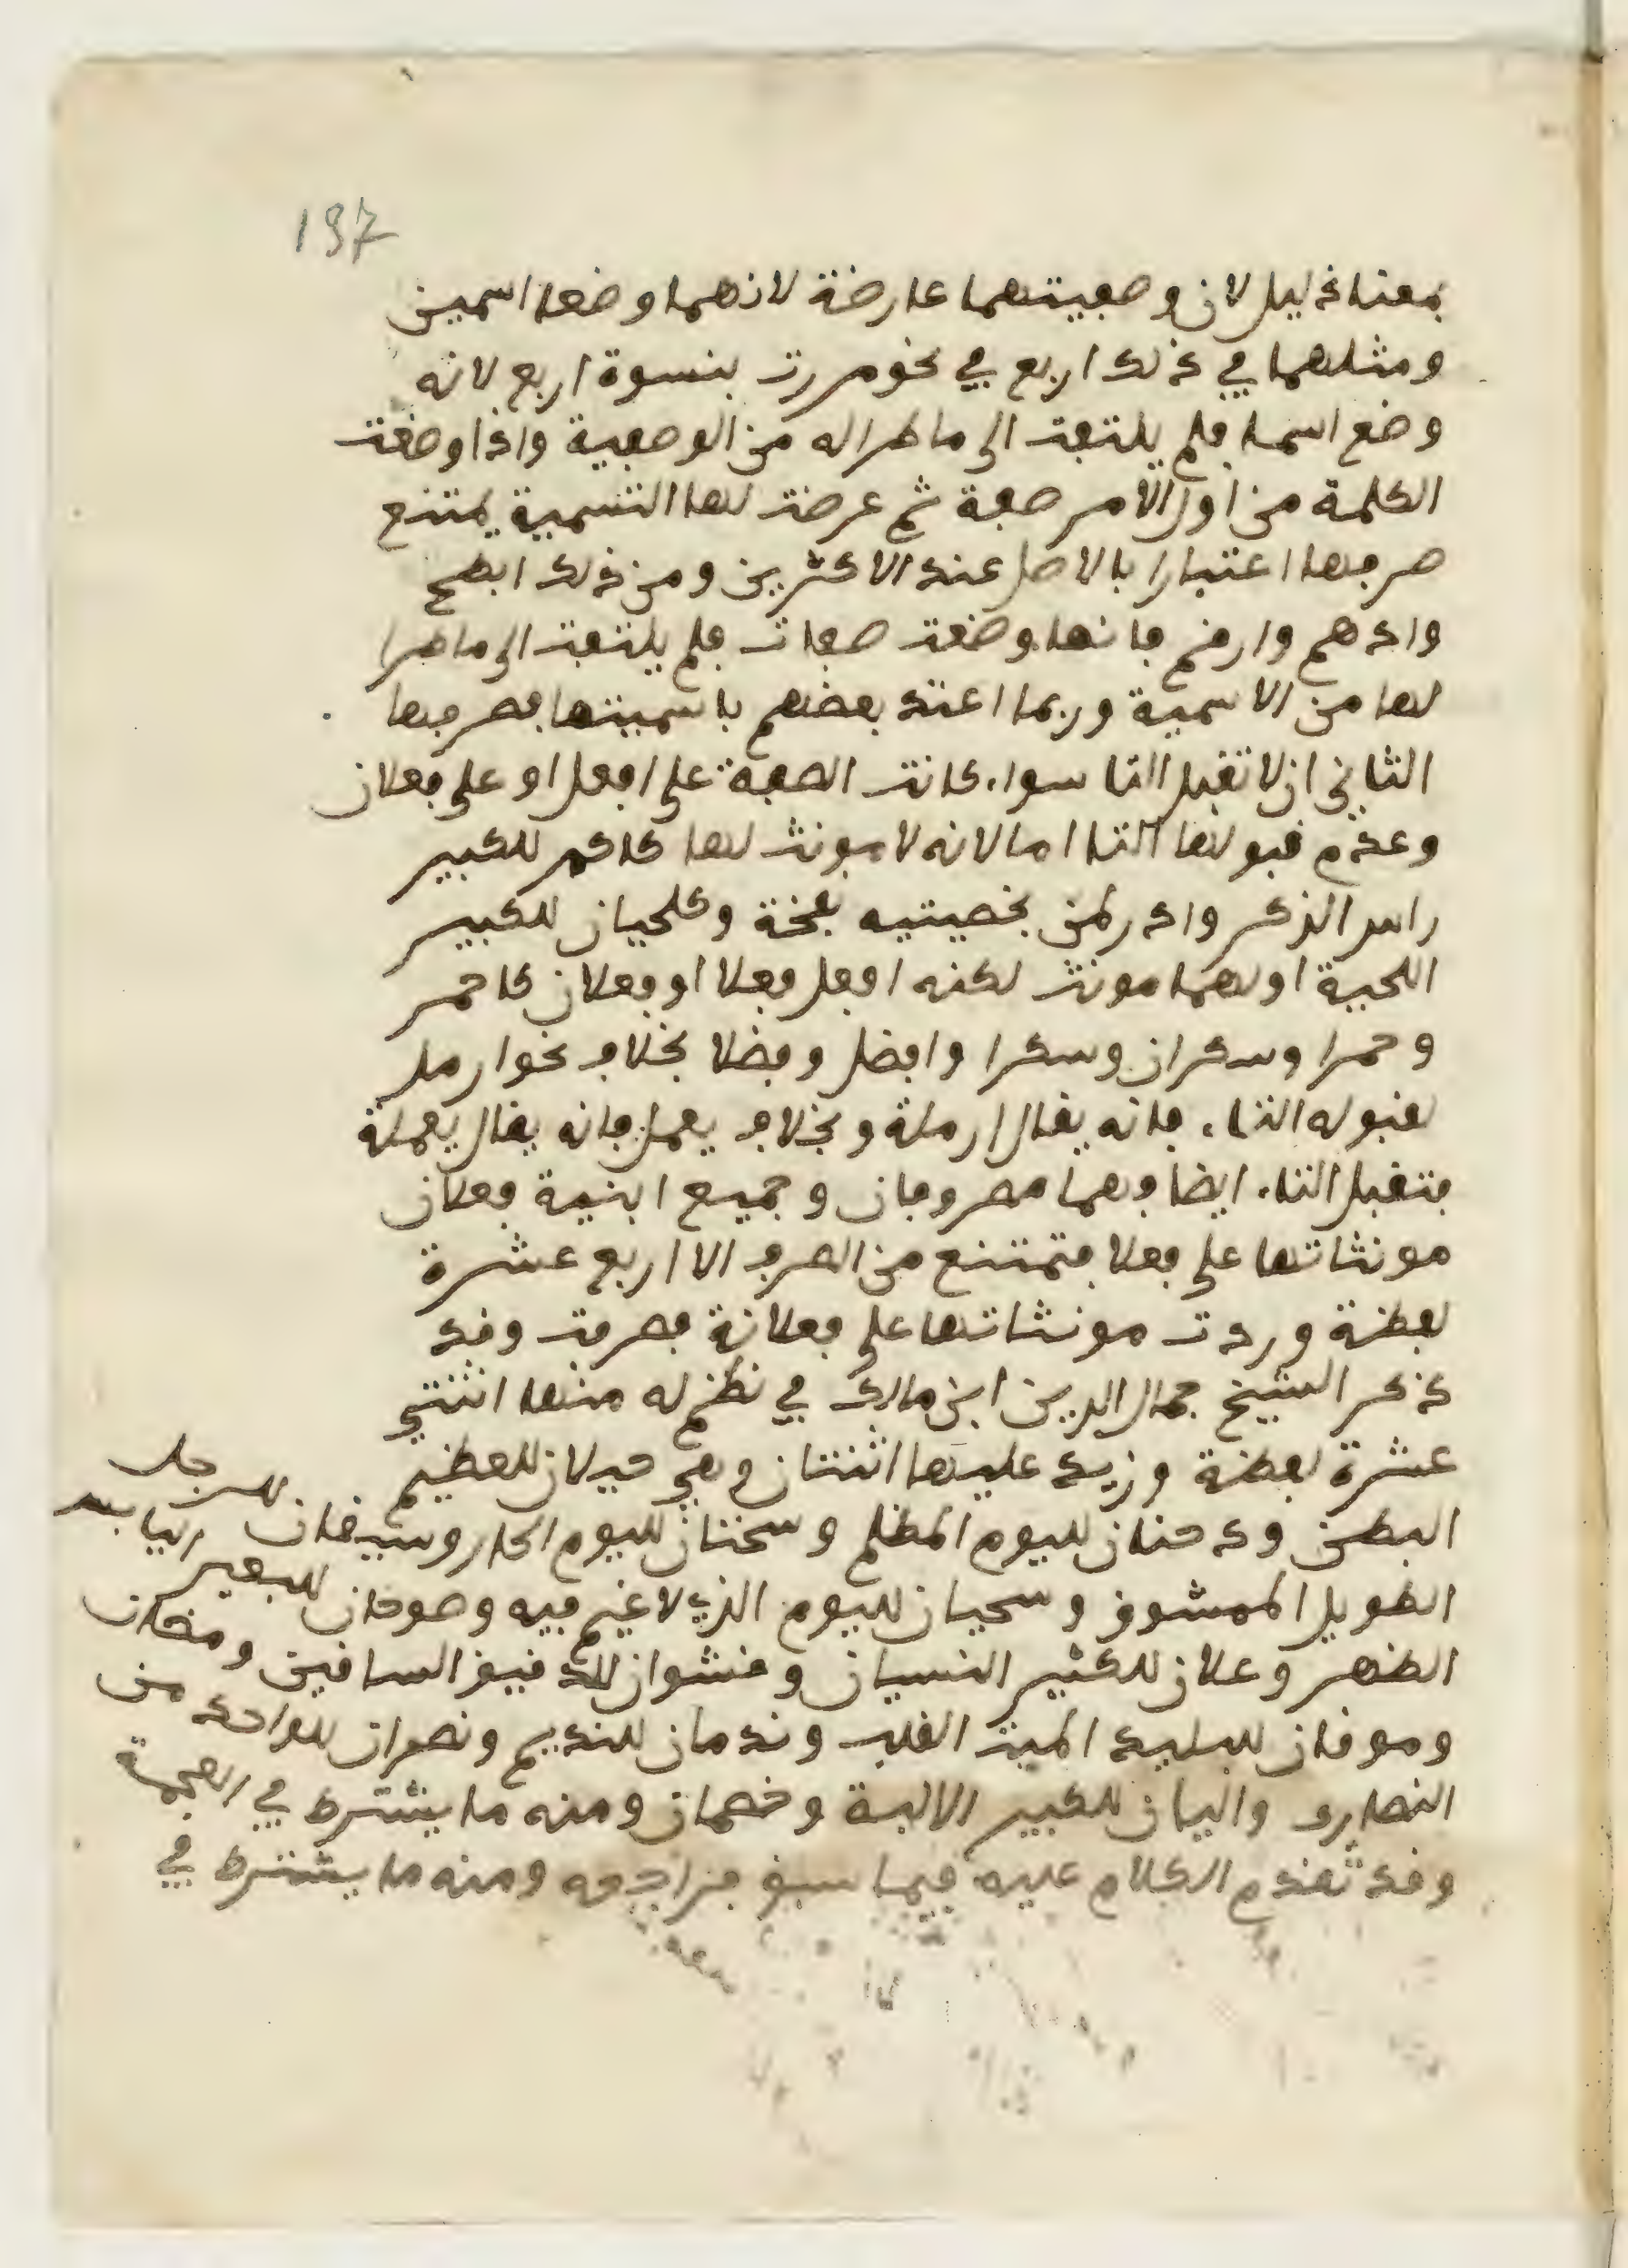 197
بمعنا ذليل لان وصفيتهما عارضة لانهما وضعا اسمين
ومثلهما في ذلك اربع في نحو مررت بنسوة اربع لانه
وضع اسما فلم يلتفت الى ما طرا له من الوصفية واذا وضعت
الكلمة من اول الامر صفة ثم عرضت لها التسمية يمتنع
صرفها اعتبارا بالاصل عند الاكثرين ومن ذلك ابطح
وادهم وارقم فانها وضعت صفات فلم يلتفت الى ما طرا
لها من الاسمية وربما اعتد بعضهم باسميتها فصرفها
الثاني ان لا تقبل التا سواء كانت الصفة على افعل او على فعلان
وعدم قبولها التا اما لانه لا مونث لها كاكمر للكبير
راس الذكر وادر لمن بخصيتيه نفخة وكلحيان للكبير
اللحية او لهما مونث لكنه افعل فعلا او فعلان كاحمر
وحمرا وسكران وسكرا وافضل وفضلا بخلاف نحو ارمل
لقبوله التاء فانه يقال ارملة وبخلاف يعمل فانه يقال يعملة
فتقبل التاء ايضا وهما مصروفان وجميع ابنية فعلان
مونثاتها على فعلا فتمتنع من الصرف الا اربع عشرة
لفظة وردت مونثاتها على فعلانة فصرفت وقد
ذكر الشيخ جمال الدين ابن مالك في نظم له منها اثنتي
عشرة لفظة وزيد عليها اثنتان وهي حبلان للعظيم
البطن ودخنان لليوم المظلم وسخنان لليوم الحار وسيفان للرجل
الطويل الممشوق وسحيان لليوم الذي لا غيم فيه وصوحان للبعير اليابس
الظهر وعلان للكثير النسيان وقشوان للدقيق الساقين ومصان
وموتان للبليد الميت القلب وندمان للنديم ونصران للواحد من
النصارى واليان للكبير الالية وخمصان ومنه ما يشترط في العجمة
وقد تقدم الكلام عليه فيما سبق فراجعه ومنه ما يشترط في